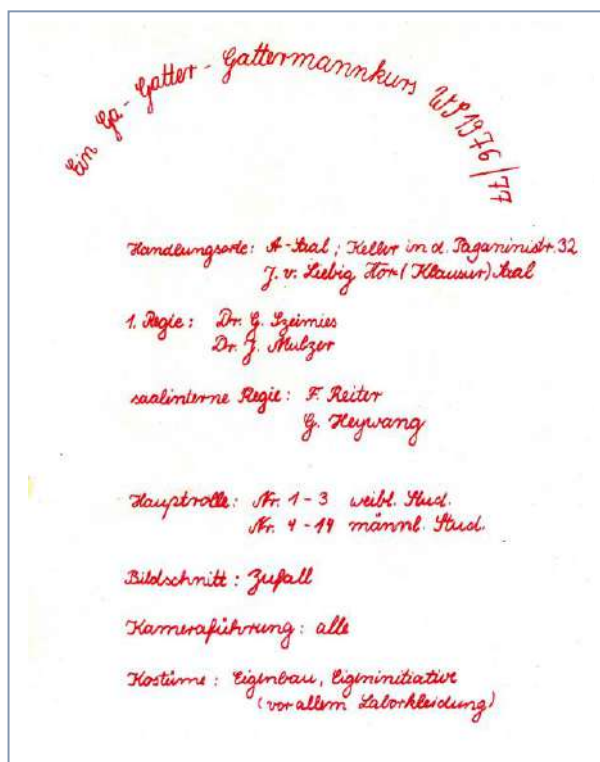 Ein Ga-Gatter-Gattermannkurs WS 1976/77
Handlungsorte: A-Saal; Keller in d. Paganinistr. 32
J. v. Liebig Hör-(Klausur)Saal
1. Regie: Dr. G. Szeimies
Dr. J. Mulzer
saalinterne Regie: F. Reiter
G. Heywang
Hauptrolle: Nr. 1-3 weibl. Stud.
Nr. 4-14 männl. Stud.
Bildschnitt: Zufall
Kameraführung: alle
Kostüme: Eigenbau, Eigeninitiative
(vor allem Laborkleidung)